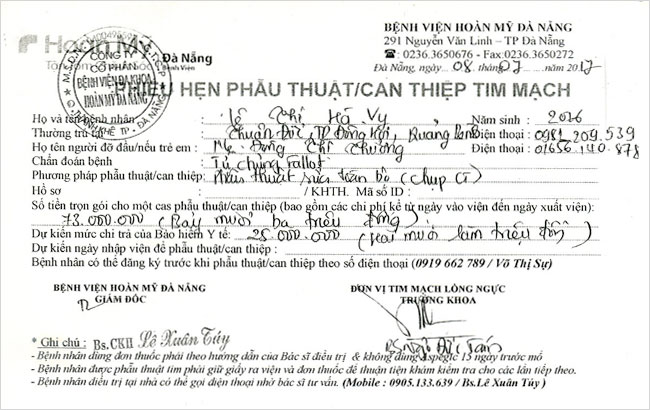 BỆNH VIỆN HOÀN MỸ ĐÀ NẴNG
291 Nguyễn Văn Linh – TP Đà Nẵng
☎: 0236.3650676 - Fax:0236.3650272
Đà Nẵng, ngày 08 tháng 07 năm 2017
Hoàn Mỹ
Đà Nẵng
CÔNG TY
CỔ PHẦN
BỆNH VIỆN ĐA KHOA
HOÀN MỸ ĐÀ NẴNG
PHIẾU HẸN PHẪU THUẬT/CAN THIỆP TIM MẠCH
Họ và tên bệnh nhân: Lê Thị Hà Vy Năm sinh : 2016
Thường trú tại: Thuận Đức, TP Đồng Hới, Quảng Bình Điện thoại : 0981 209.539
Họ tên người đỡ đầu/nếu trẻ em : Mẹ Đồng Thị Thương Điện thoại : 01656 140.878
Chẩn đoán bệnh : Tứ chứng Fallot
Phương pháp phẫu thuật/can thiệp: Phẫu thuật sửa toàn bộ (chụp CT)
Hồ sơ : / KHTH. Mã số ID :
Số tiền trọn gói cho một cas phẫu thuật/can thiệp (bao gồm các chi phí kể từ ngày vào viện đến ngày xuất viện):
73.000.000 (Bảy mươi ba triệu đồng)
Dự kiến mức chi trả của Bảo hiểm Y tế: 25.000.000 (Hai mươi lăm triệu đồng)
Dự kiến ngày nhập viện để phẫu thuật/can thiệp :
Bệnh nhân có thể đăng ký trước khi phẫu thuật/can thiệp theo số điện thoại (0919 662 789 / Võ Thị Sự)
BỆNH VIỆN HOÀN MỸ ĐÀ NẴNG
GIÁM ĐỐC
ĐƠN VỊ TIM MẠCH LỒNG NGỰC
TRƯỞNG KHOA
* Ghi chú : Bs.CKII Lê Xuân Túy
- Bệnh nhân dùng đơn thuốc phải theo hướng dẫn của Bác sĩ điều trị & không dùng Aspegic 15 ngày trước mổ
- Bệnh nhân được phẫu thuật tim phải giữ giấy ra viện và đơn thuốc để thuận tiện khám kiểm tra cho các lần tiếp theo.
- Bệnh nhân điều trị tại nhà có thể gọi điện thoại nhờ bác sĩ tư vấn. (Mobile : 0905.133.639 / Bs.Lê Xuân Túy )